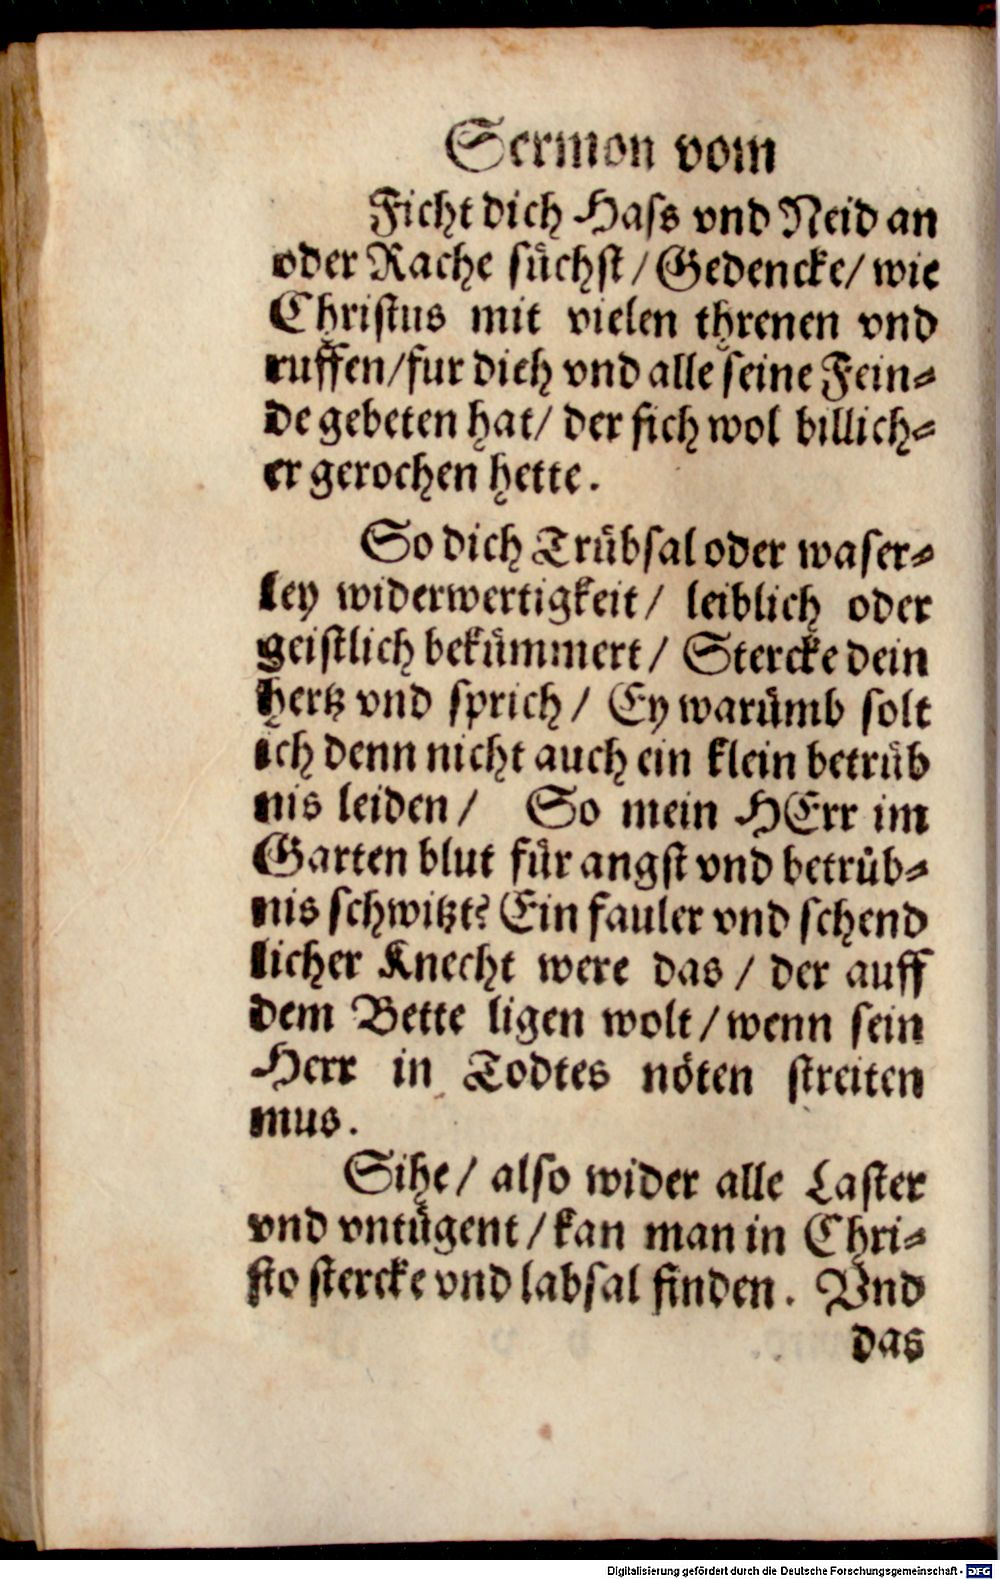 Sermon vom
Ficht dich Hass vnd Neid an
oder Rache süchst / Gedencke / wie
Christus mit vielen threnen vnd
ruffen / fur dich vnd alle seine Fein⸗
de gebeten hat / der sich wol billich⸗
er gerochen hette.
So dich Trübsal oder waser⸗
ley widerwertigkeit / leiblich oder
geistlich bekümmert / Stercke dein
hertz vnd sprich / Ey warümb solt
ich denn nicht auch ein klein betrüb
nis leiden / So mein HErr im
Garten blut für angst vnd betrüb⸗
nis schwitzt? Ein fauler vnd schend
licher Knecht were das / der auff
dem Bette ligen wolt / wenn sein
Herr in Todtes nöten streiten
mus.
Sihe / also wider alle Laster
vnd vntügent / kan man in Chri⸗
sto stercke vnd labsal finden. Vnd
das
Digitalisierung gefördert durch die Deutsche Forschungsgemeinschaft - DFG